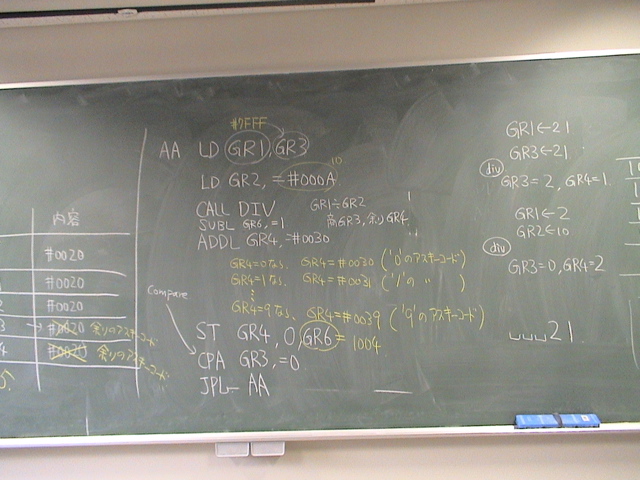 内容
#0020
#0020
#0020
3 → #0020 余りのアスキーコード
4 #0020 余りのアスキーコード
#7FFF
AA LD GR1, GR3
10
LD GR2, =#000A
CALL DIV GR1÷GR2
SUBL GR6, =1 商GR3, 余りGR4
ADDL GR4, =#0030
GR4=0なら、 GR4=#0030 ('0'のアスキーコード)
GR4=1なら、 GR4=#0031 ('1'の 〃 )
GR4=9なら、 GR4=#0039 ('9'のアスキーコード)
Compare
ST GR4, 0, GR6 = 1004
CPA GR3, =0
JPL AA
GR1←21
GR3←21
div
GR3=2, GR4=1
GR1←2
GR2←10
div
GR3=0, GR4=2
␣␣␣21